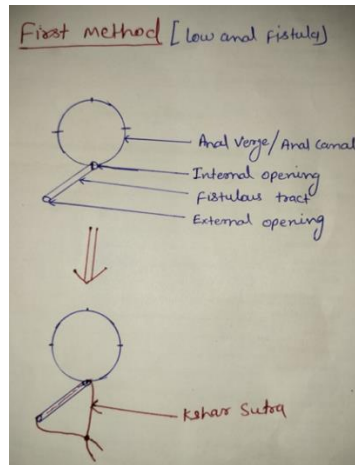 First Method [Low anal fistula]
Anal Verge/Anal Canal
Internal opening
Fistulous tract
External opening
Kshar Sutra